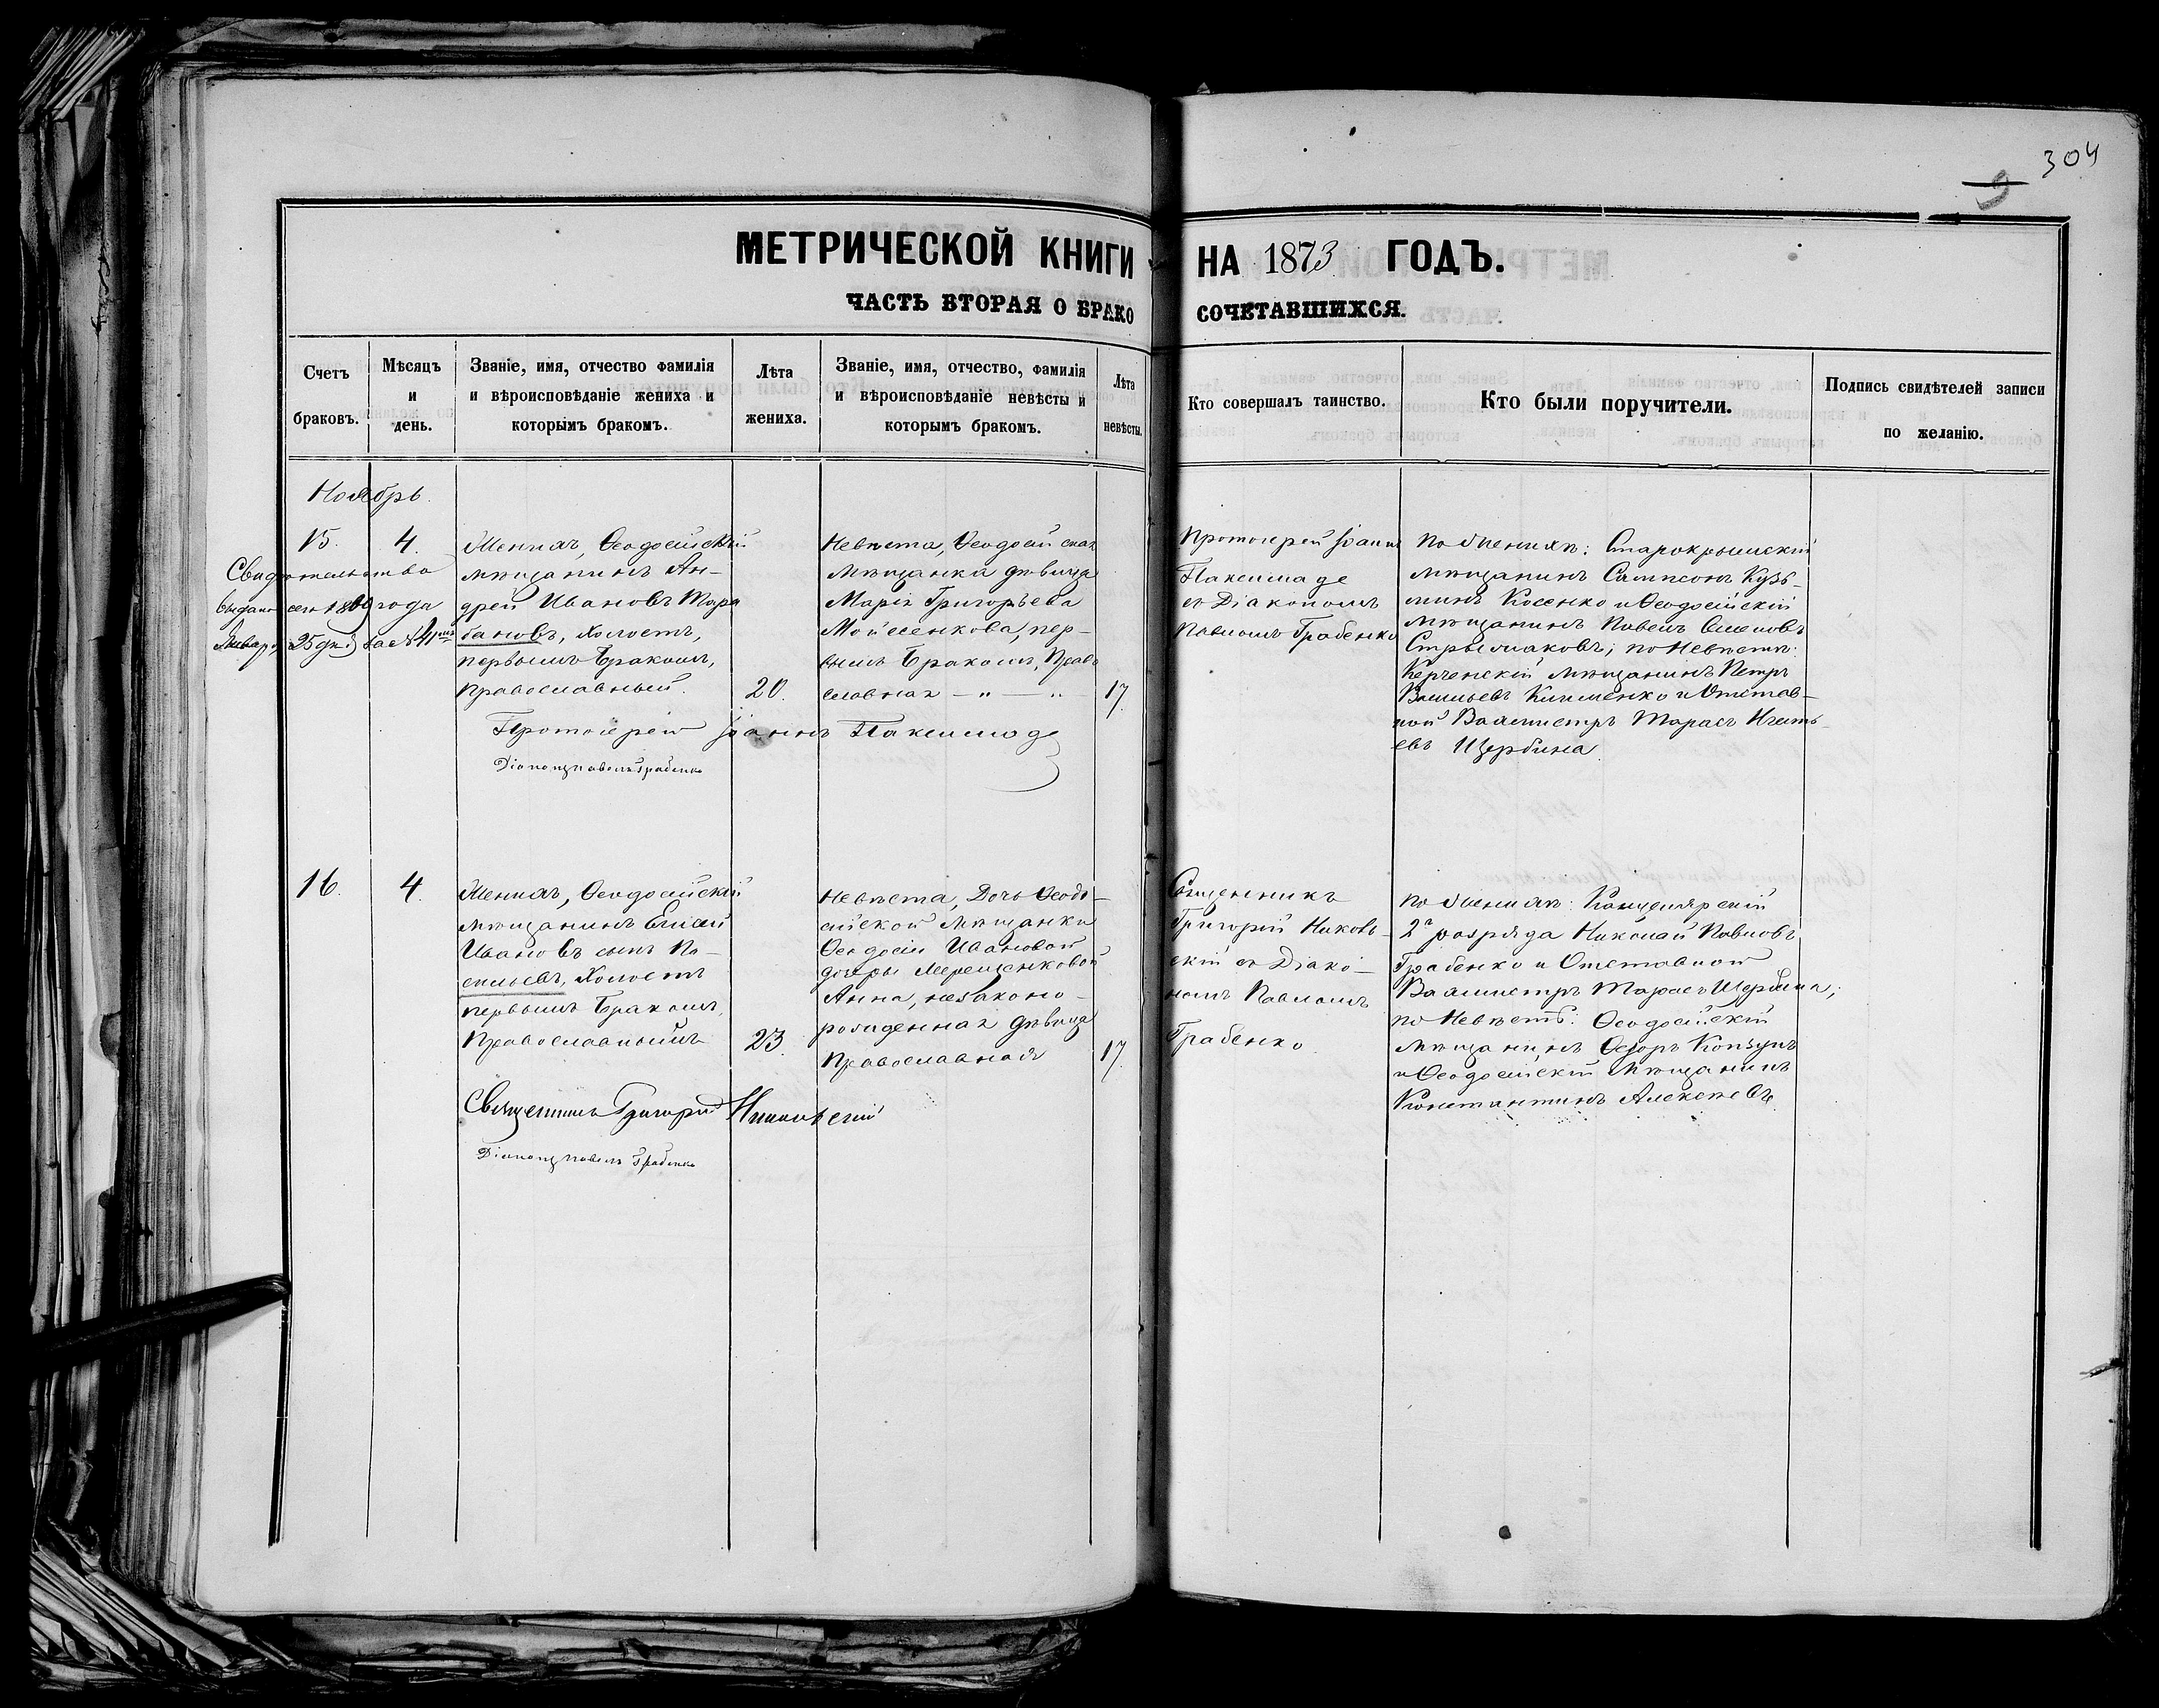 304
9
МЕТРИЧЕСКОЙ КНИГИ НА 1873 ГОДЪ.
ЧАСТЬ ВТОРАЯ О БРАКО СОЧЕТАВШИХСЯ.
Счетъ браковъ.
Мѣсяцъ и день.
Званіе, имя, отчество фамилія
и вѣроисповѣданіе жениха и
которымъ бракомъ.
Лѣта
жениха.
Званіе, имя, отчество, фамилія
и вѣроисповѣданіе невѣсты и
которымъ бракомъ.
Лѣта
невѣсты.
Кто совершалъ таинство.
Кто были поручители.
Подпись свидѣтелей записи
по желанію.
Ноябрь.
15.
4.
Свидѣтельство
выдано сего года
Января 25 дня за №
Женихъ, Ѳеодосійскій
мѣщанинъ Ан-
дрей Ивановъ Тара
бановъ, холостъ,
первымъ бракомъ,
православный.
20.
Невѣста, Ѳеодосійская
мѣщанка дѣвица
Марія Григорьева
Мойсенкова, пер-
вымъ бракомъ, Право
славная — " — "
17.
Протоіерей Іоаннъ
Паксимаде
съ Діакономъ
Павломъ Грабенко
по Женихѣ: Старокрымскій
мѣщанинъ Сампсонъ Кузь-
минъ Косенко и Ѳеодосійскій
мѣщанинъ Павелъ Семеновъ
по Невѣстѣ:
Керченскій мѣщанинъ Петръ
Васильевъ Клименко и Отстав-
ной Вахмистръ Тарасъ Игнать-
евъ Щербина.
Протоіерей Іоаннъ Паксимаде
Діаконъ Павелъ Грабенко
16.
4.
Женихъ, Ѳеодосійскій
мѣщанинъ Елисей
Ивановъ сынъ Ва-
сильевъ, холостъ
первымъ бракомъ,
Православный
23.
Невѣста, Дочь Ѳеодо-
сійской мѣщанки
Ѳеодосіи Ивановой
дочеры Терещенковой
Анна, незаконо-
рожденная дѣвица
Православная
17.
Священникъ
Григорій Никовь-
скій съ Діако-
номъ Павломъ
Грабенко
по Женихѣ: Канцелярскій
2го разряда Николай Павловъ
Грабенко и Отставной
Вахмистръ Тарасъ Щербина;
по Невѣстѣ: Ѳеодосійскій
мѣщанинъ Ѳедоръ Ковзунъ
и Ѳеодосійскій мѣщанинъ
Константинъ Алексѣевъ.
Священникъ Григорій Никовьскій
Діаконъ Павелъ Грабенко